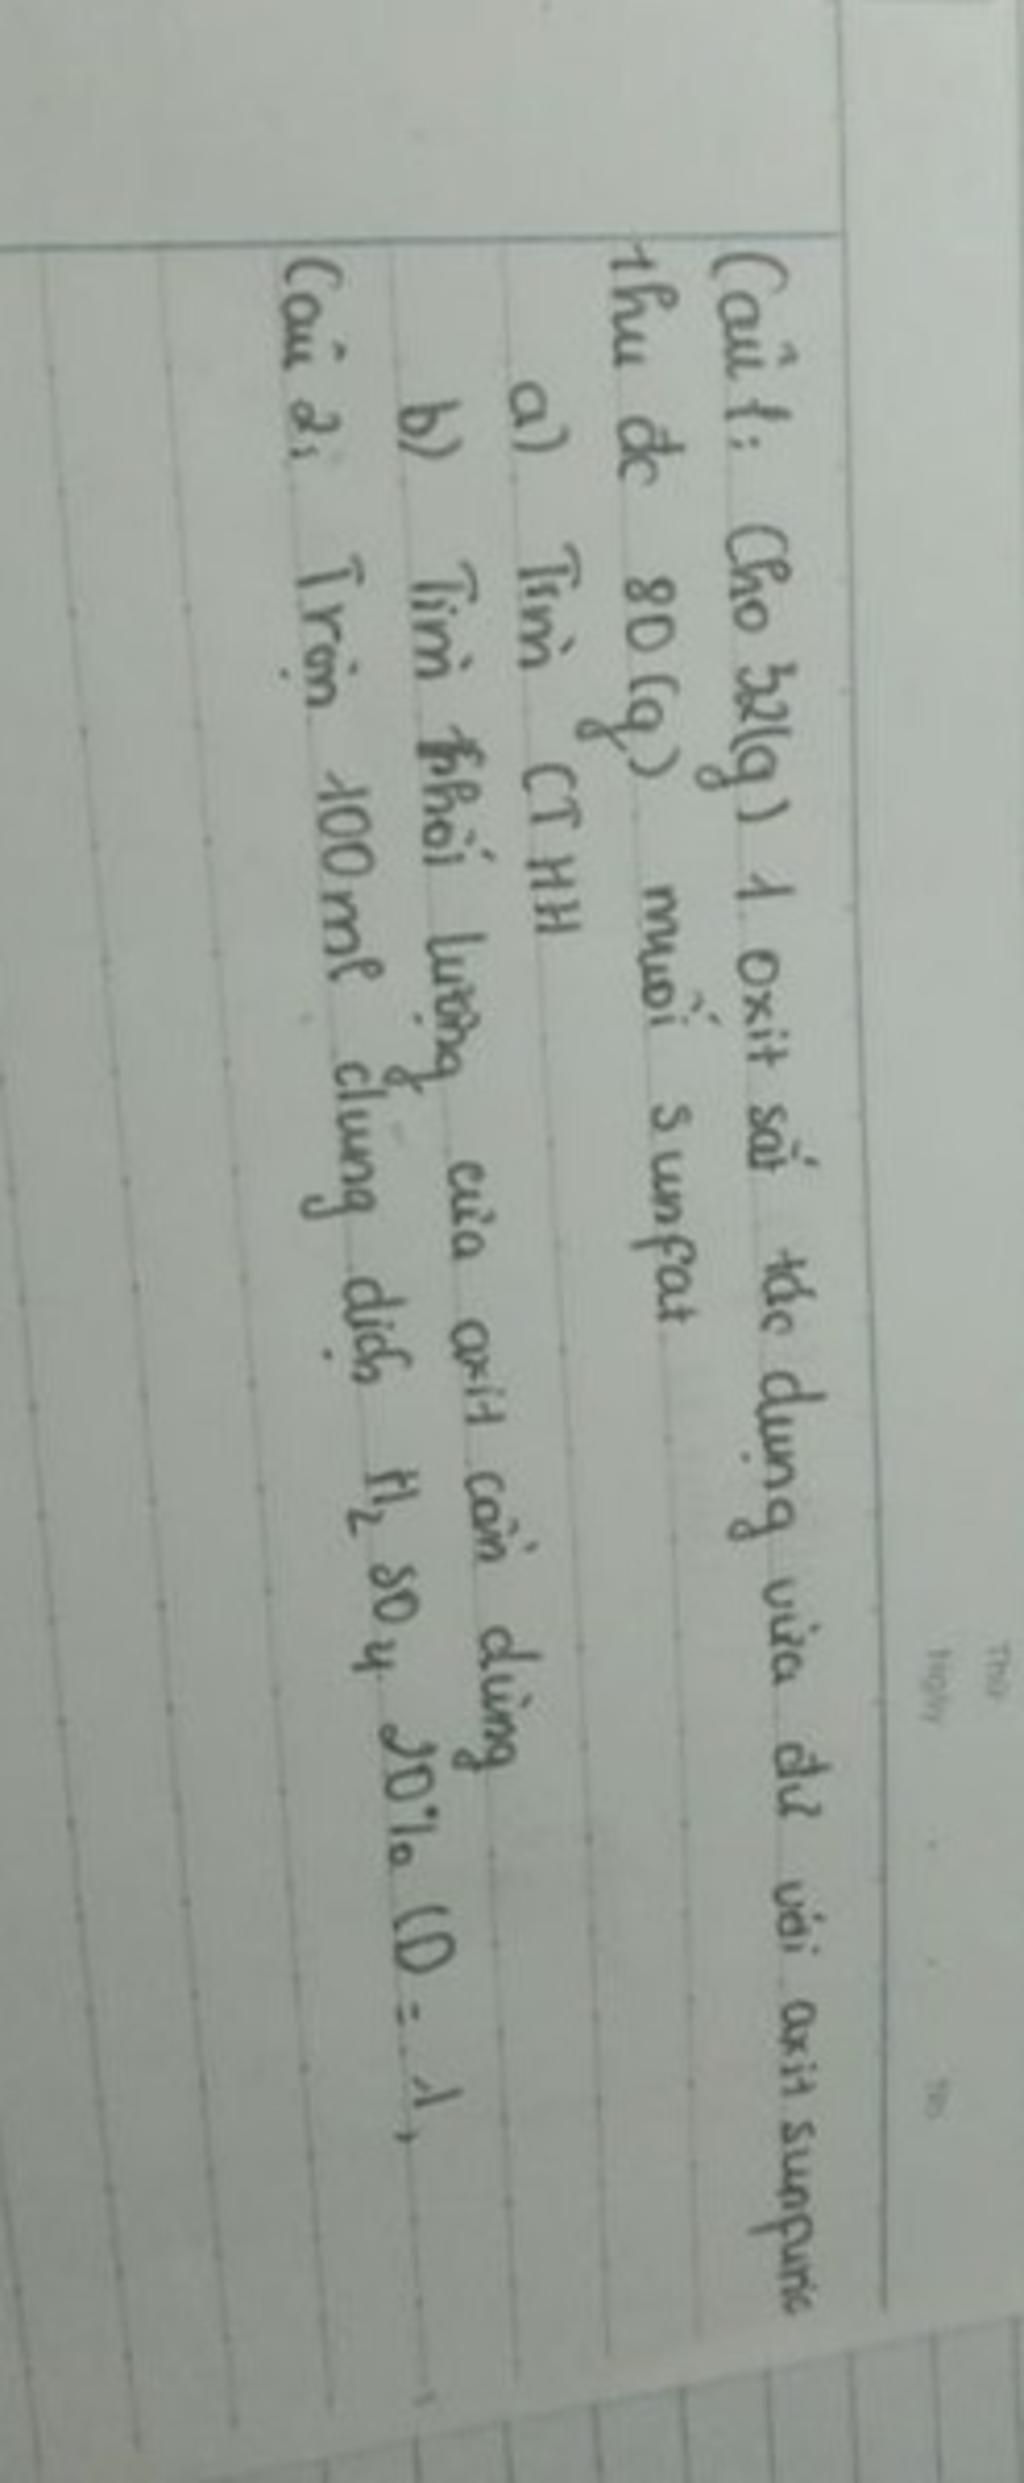 Thứ
Ngày
No
Câu 1: Cho 32(g) 1 oxit sắt tác dụng vừa đủ với axit sunfuric
thu đc 80(g) muối sunfat
a) Tìm CTHH
b) Tìm khối lượng của axit cần dùng
Câu 2: Trộn 100ml dung dịch H₂SO₄ 20% (D = 1,